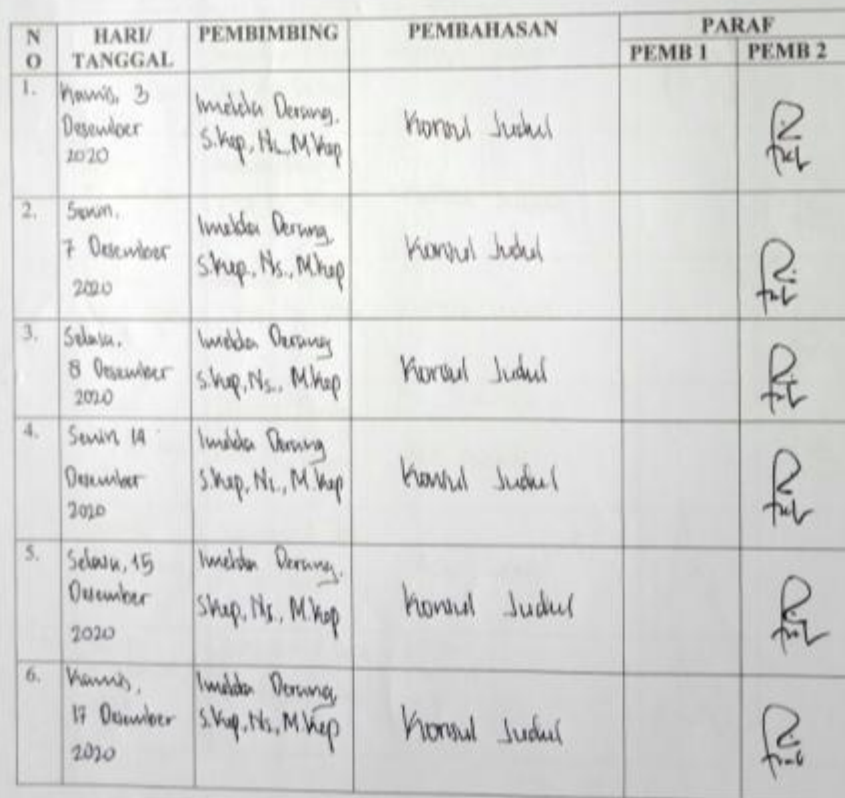 N O HARI/ TANGGAL PEMBIMBING PEMBAHASAN PARAF
PEMB 1 PEMB 2
1. Kamis, 3 Desember 2020 Imelda Derang, S.Kep, Ns., M.Kep Konsul Judul
2. Senin, 7 Desember 2020 Imelda Derang, S.Kep., Ns., M.Kep Konsul Judul
3. Selasa, 8 Desember 2020 Imelda Derang S.Kep, Ns., M.Kep Konsul Judul
4. Senin 14 Desember 2020 Imelda Derang S.Kep, Ns., M.Kep Konsul Judul
5. Selasa, 15 Desember 2020 Imelda Derang, SKep, Ns., M.Kep Konsul Judul
6. Kamis, 17 Desember 2020 Imelda Derang, S.Kep, Ns, M.Kep Konsul Judul